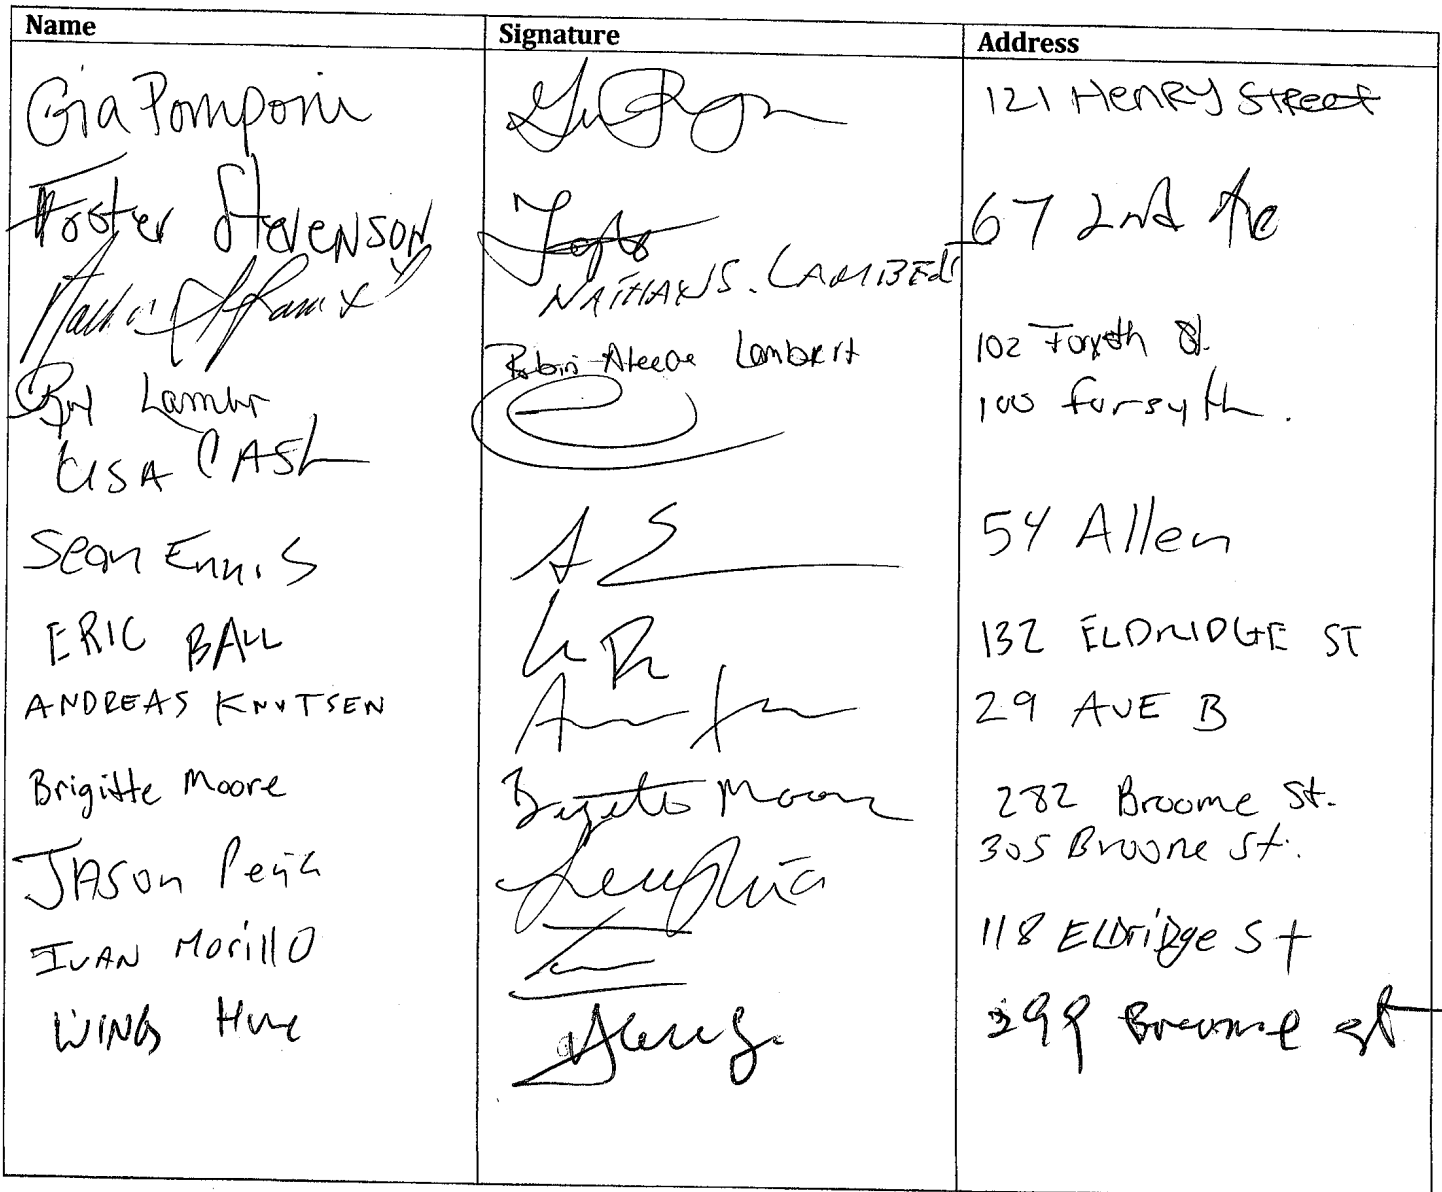 Name Signature Address
Gia Pomponi 121 Henry Street
Foster Stevenson 67 2nd Ave
NATHAN S. LAMBERT
Robin Lambert 102 Forsyth St.
Lambert 100 Forsyth.
LISA CASH
Sean Ennis 54 Allen
ERIC BALL 132 ELDRIDGE ST
ANDREAS KNUTSEN 29 AVE B
Brigitte Moore Brigitte Moore 282 Broome St.
JASON Peña 305 Broome St.
IVAN Morillo 118 ElDriDge St
WING 299 Broome st